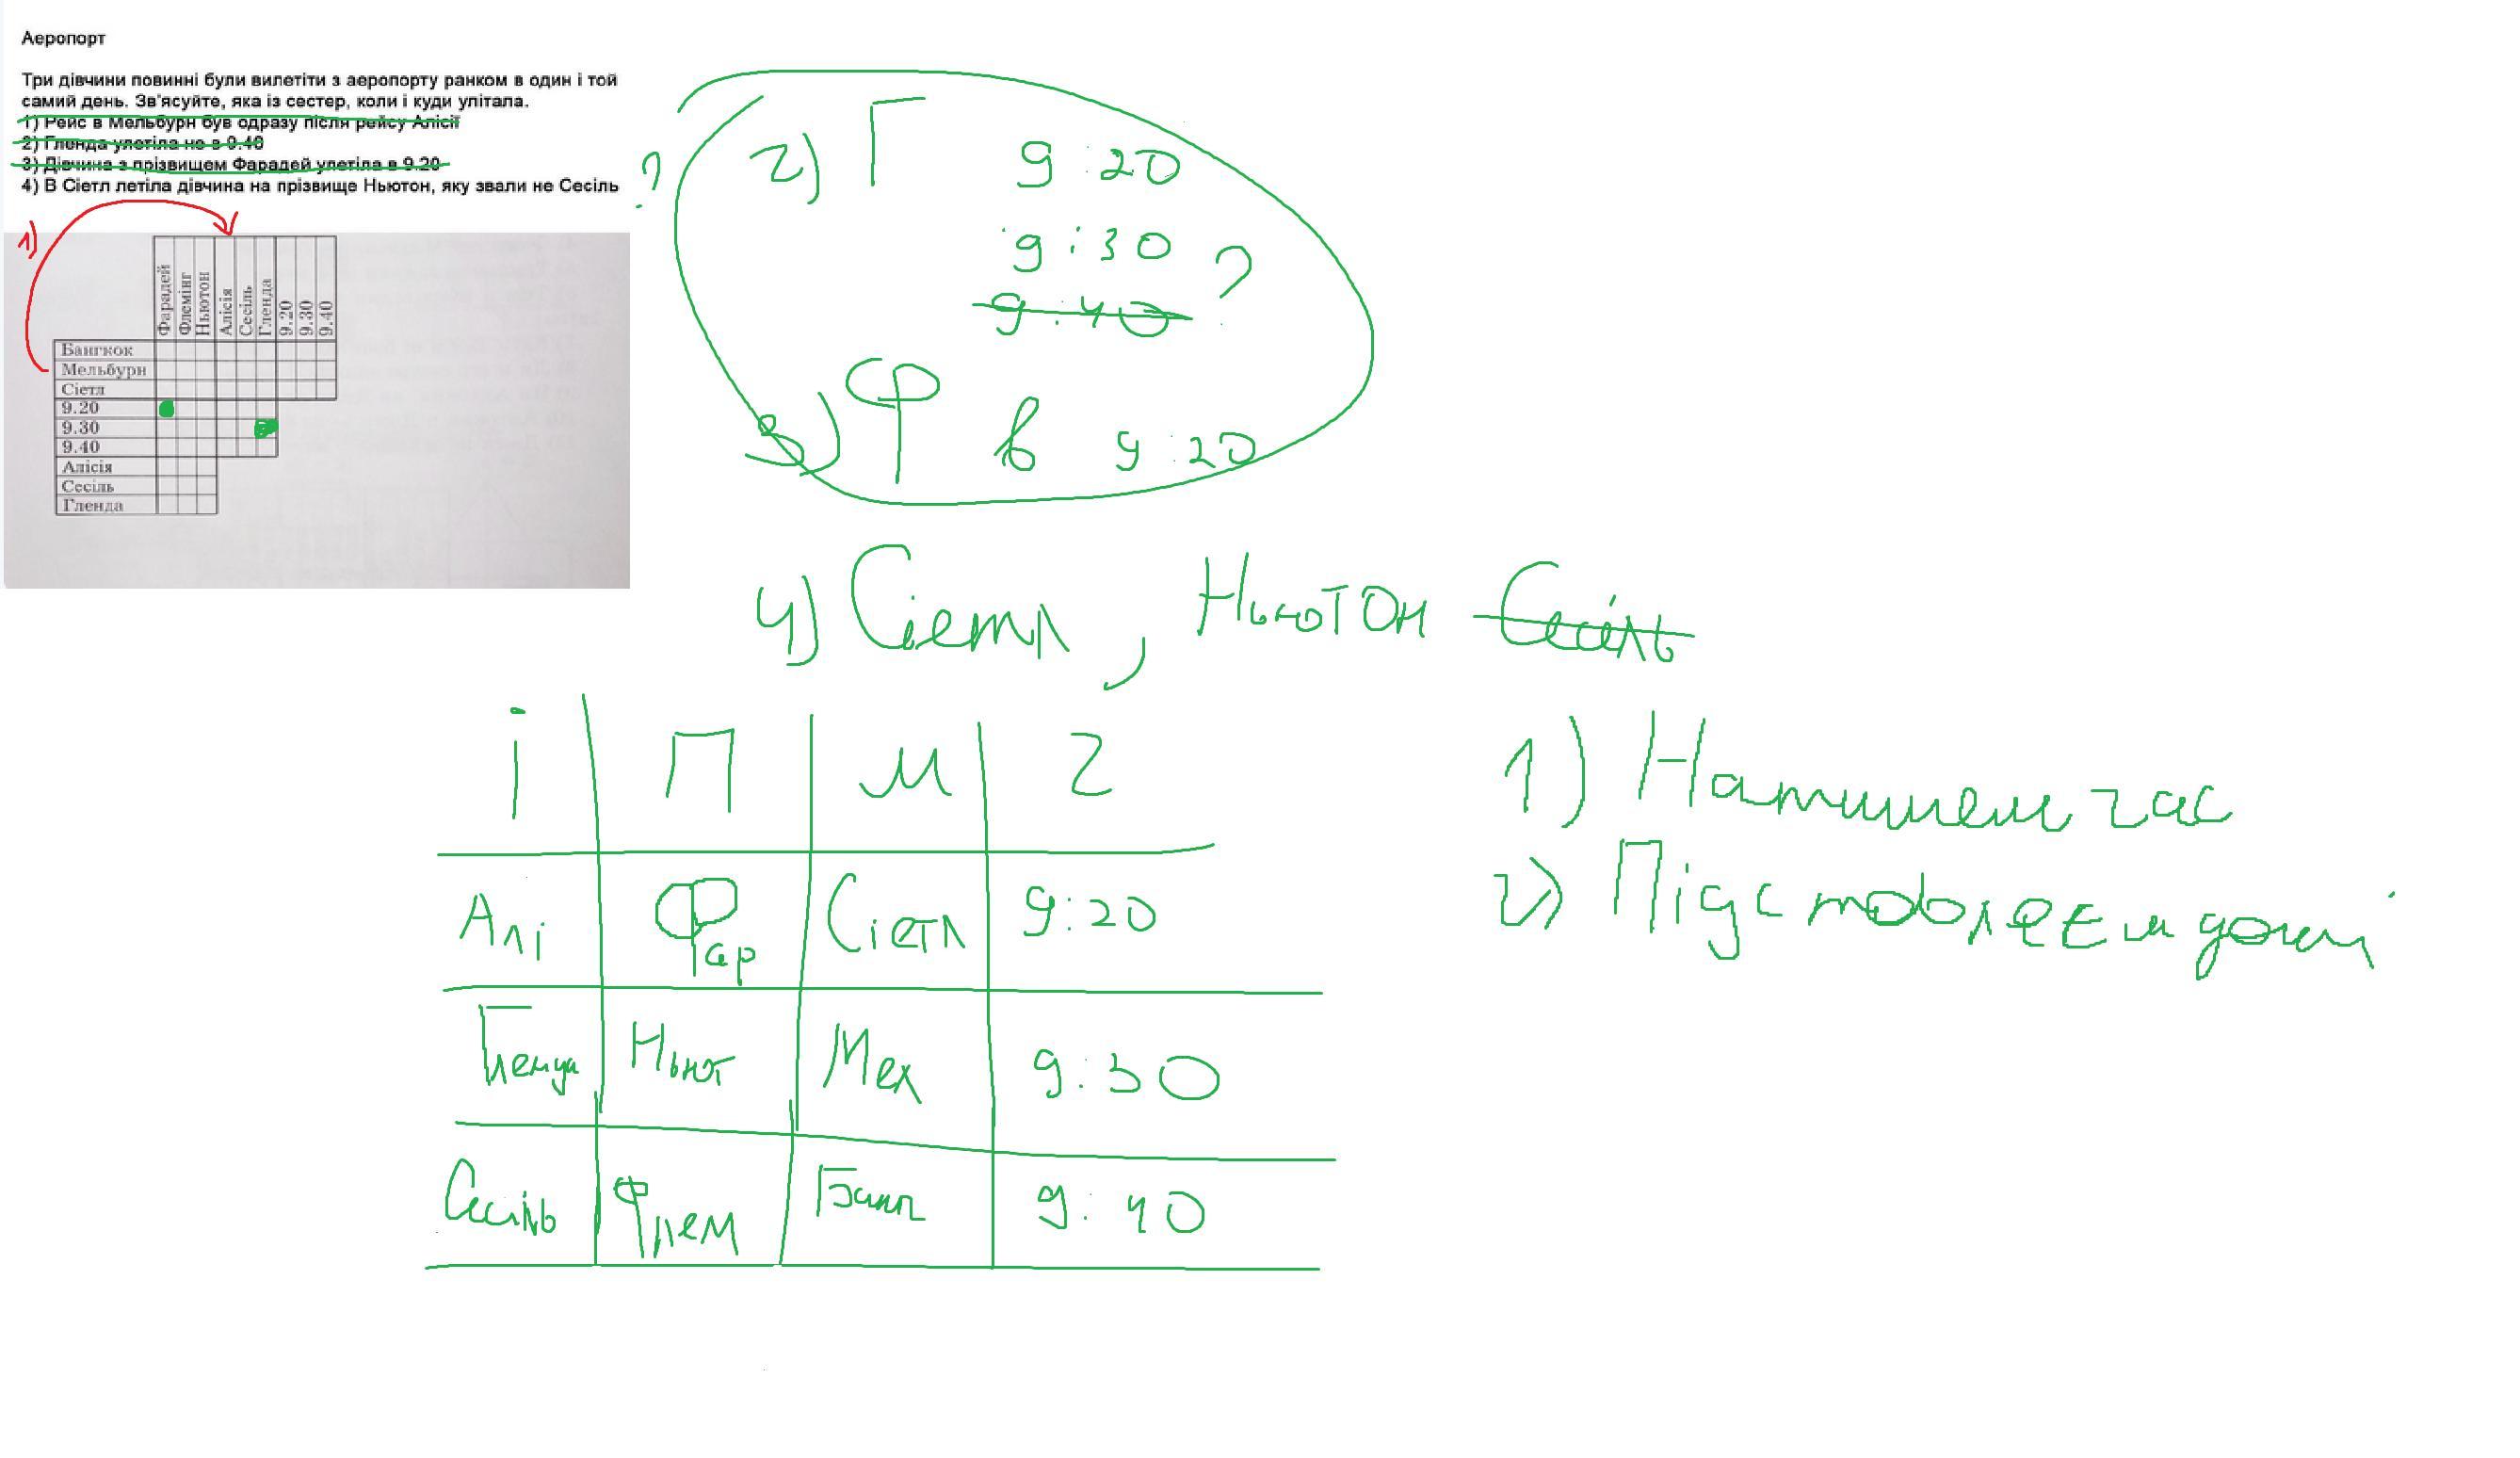 Аеропорт
Три дівчини повинні були вилетіти з аеропорту ранком в один і той
самий день. Зв'ясуйте, яка із сестер, коли і куди улітала.
1) Рейс в Мельбурн був одразу після рейсу Алісії
2) Гленда улетіла не в 9.40
3) Дівчина з прізвищем Фарадей улетіла в 9.20
4) В Сіетл летіла дівчина на прізвище Ньютон, яку звали не Сесіль
?
1)
Фарадей Флемінг Ньютон Алісія Сесіль Гленда 9.20 9.30 9.40
Бангкок
Мельбурн
Сіетл
9.20
9.30
9.40
Алісія
Сесіль
Гленда
2) Г 9:20
9:30
9:40 ?
3) Ф в 9:20
4) Сіетл, Ньютон Сесіль
І П М 2
Алі Фар Сіетл 9:20
Гленда Ньют Мех 9:30
Сесіль Флем 9:40
1) Напишем час
2)